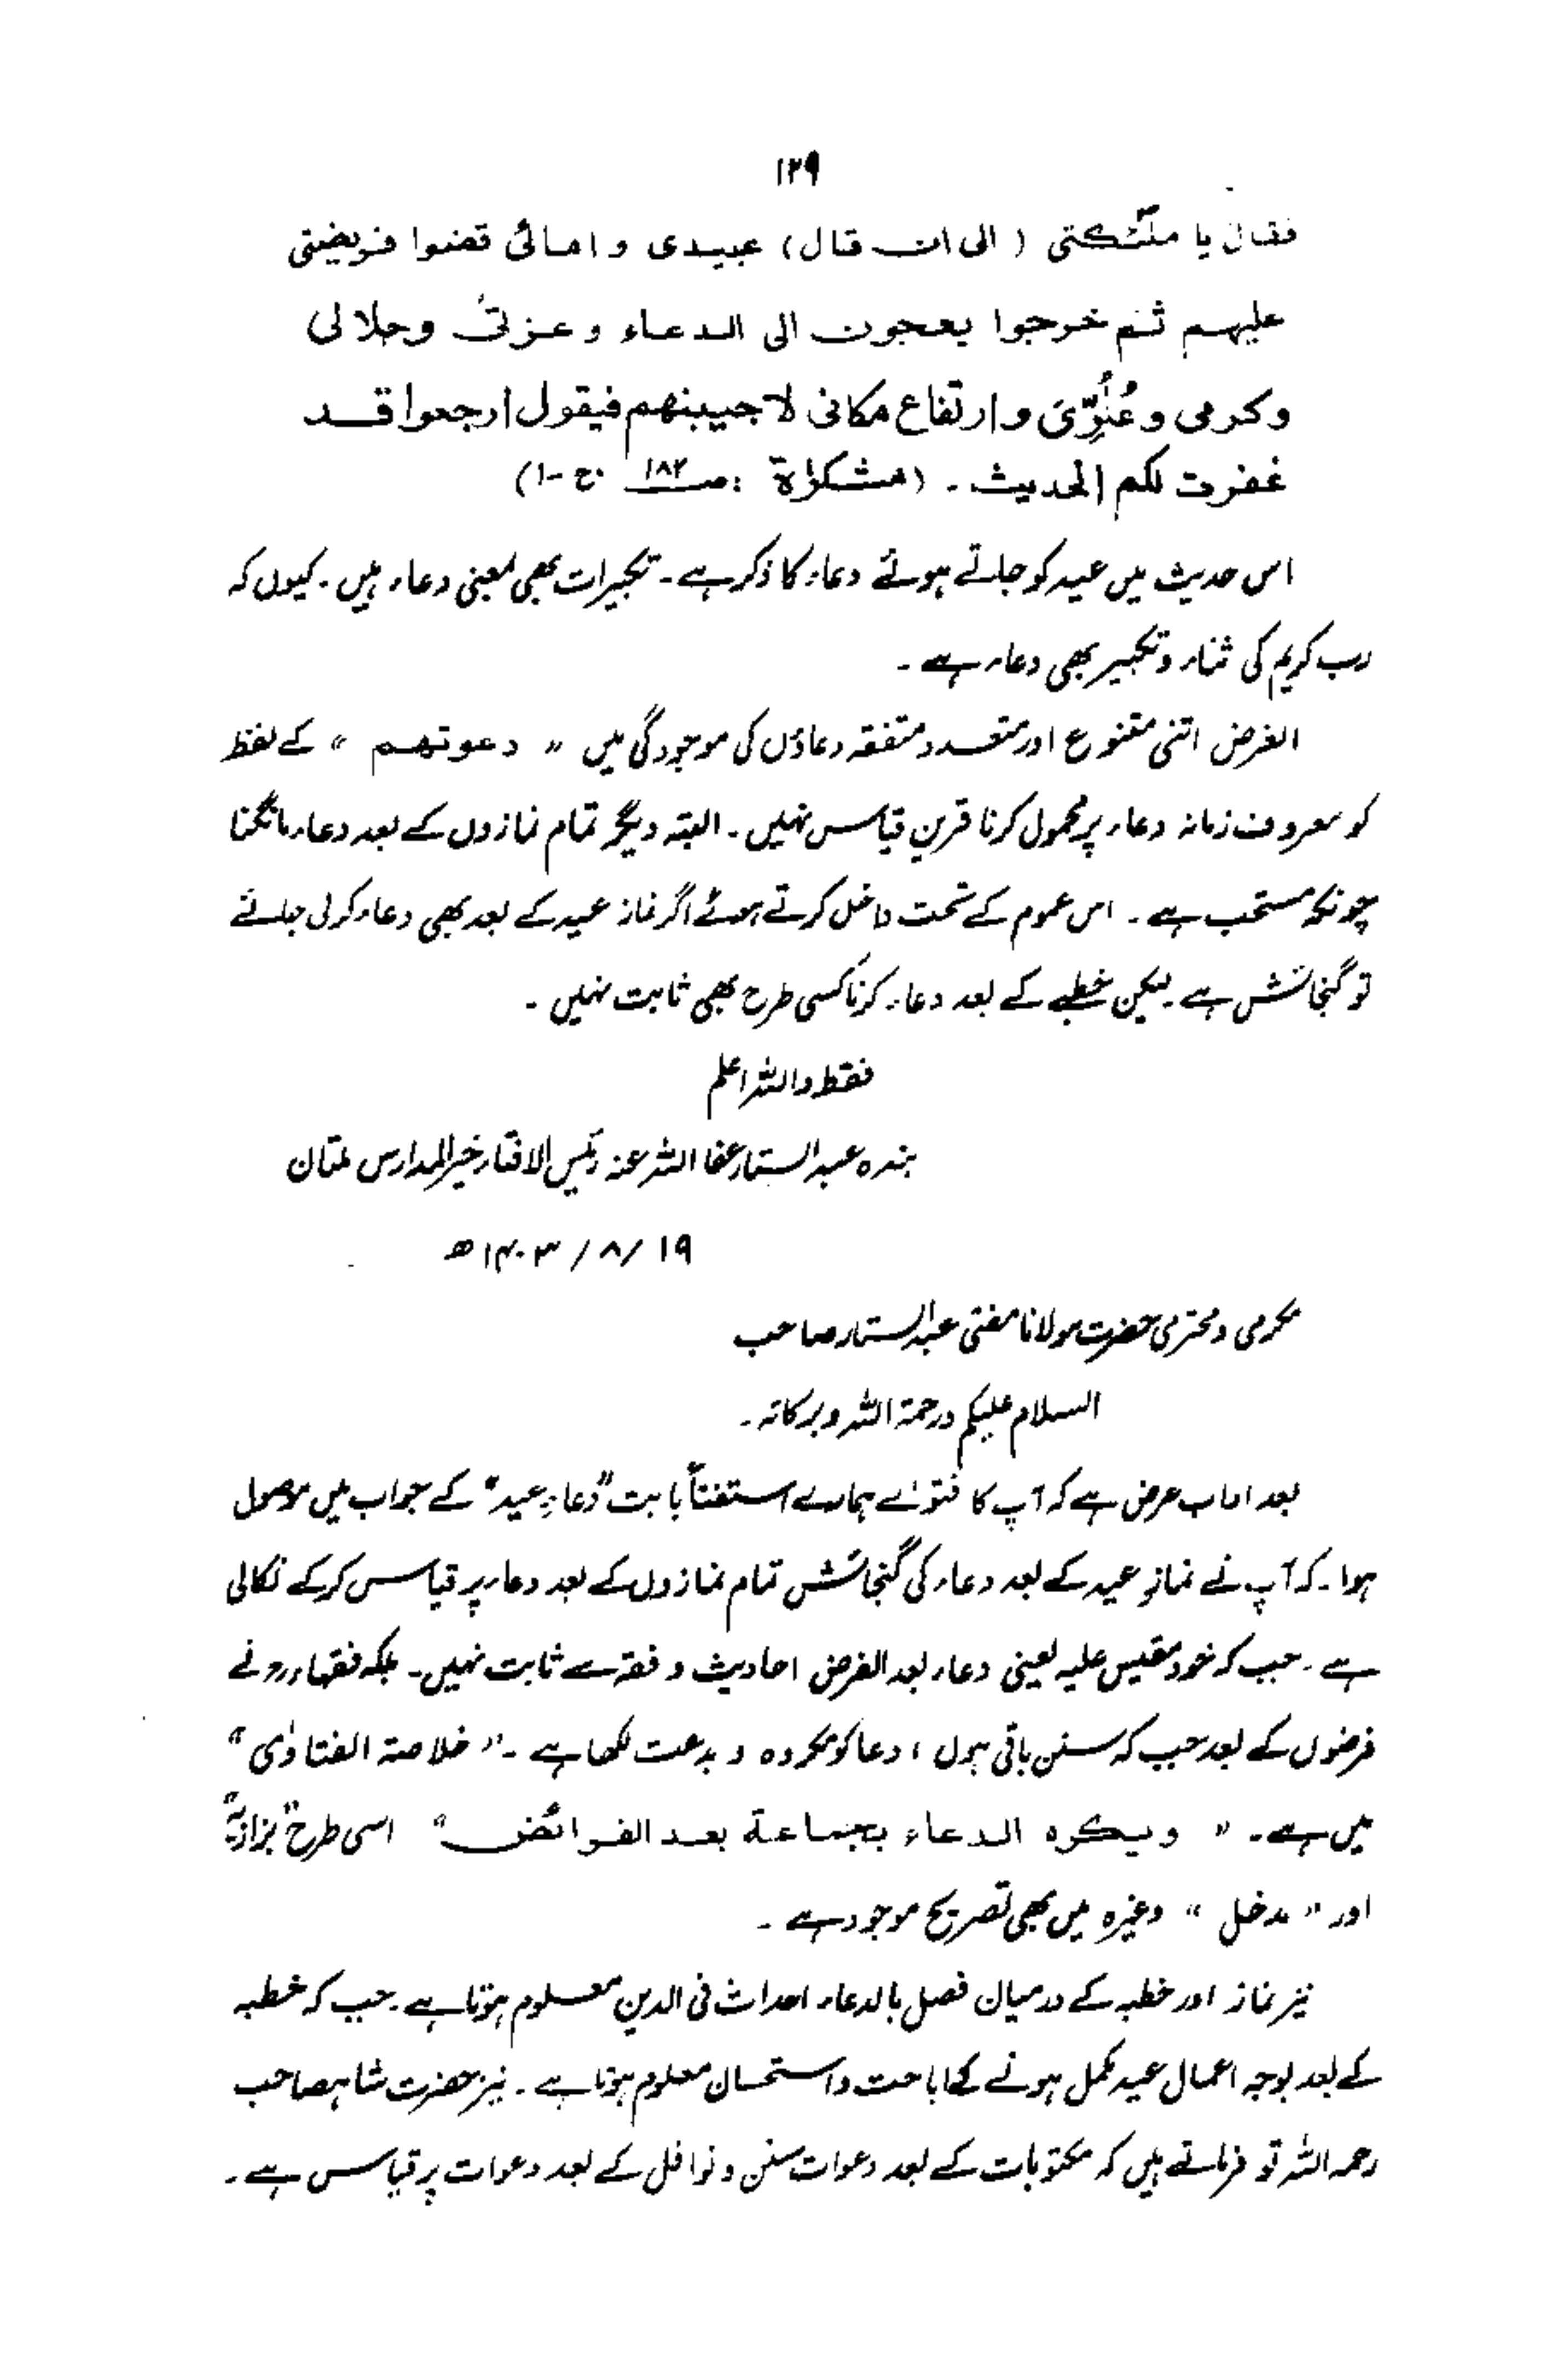 ۱۲۹
فقال یا ملٰٓئکتی (الی ان قال) عبیدی و امائی قضوا فریضتی
علیہم ثم خرجوا یعجون الی الدعاء و عزتی وجلالی
وکرمی وعُلُوِّی وارتفاع مکانی لاجیبنھم فیقول ارجعوا قد
غفرت لکم الحدیث۔ (مشکوٰۃ : صـ۱۸۲ ، ج-۱)
اس حدیث میں عید کو جاتے ہوئے دعاء کا ذکر ہے۔ تکبیرات بھی بمعنی دعاء ہیں۔ کیوں کہ
رب کریم کی ثناء و تکبیر بھی دعاء ہے۔
الغرض اتنی متنوع اور متعدد متفقہ دعاؤں کی موجودگی میں " دعوتھم " کے لفظ
کو معروف زمانہ دعاء پر محمول کرنا قرینِ قیاس نہیں۔ البتہ دیگر تمام نمازوں کے بعد دعاء مانگنا
چونکہ مستحب ہے۔ اس عموم کے تحت داخل کرتے ہوئے اگر نماز عید کے بعد بھی دعاء کرلی جائے
تو گنجائش ہے۔ لیکن خطبے کے بعد دعاء کرنا کسی طرح بھی ثابت نہیں۔
فقط واللہ اعلم
بندہ عبد الستار عفا اللہ عنہ رئیس الافتاء خیر المدارس ملتان
۱۹ /۸ / ۱۴۰۳ھ
مکرمی و محترمی حضرت مولانا مفتی عبد الستار صاحب
السلام علیکم ورحمۃ اللہ وبرکاتہ۔
بعد اداب عرض ہے کہ آپ کا فتوٰے ہمارے استفتأ بابت "دعاءِ عید" کے جواب میں موصول
ہوا۔ کہ آپ نے نمازِ عید کے بعد دعاء کی گنجائش تمام نمازوں کے بعد دعاء پر قیاس کرکے نکالی
ہے۔ جب کہ خود مقیس علیہ یعنی دعاء بعد الفرض احادیث و فقہ سے ثابت نہیں۔ بلکہ فقہاءؒ نے
فرضوں کے بعد جب کہ سنن باقی ہوں ، دعا کو مکروہ و بدعت لکھا ہے۔ "خلاصۃ الفتاوٰی"
میں ہے۔ " ویکرہ الدعاء بجماعۃ بعد الفرائض" اسی طرح "بزازیہ"
اور " مدخل " وغیرہ میں بھی تصریح موجود ہے۔
نیز نماز اور خطبہ کے درمیان فصل بالدعاء احداث فی الدین معلوم ہوتا ہے۔ جب کہ خطبہ
کے بعد بوجہ اعمال عید مکمل ہونے کے اباحت و استحسان معلوم ہوتا ہے۔ نیز حضرت شاہصاحب
رحمہ اللہ تو فرماتے ہیں کہ مکتوبات کے بعد دعوات سنن و نوافل کے بعد دعوات پر قیاس ہے۔